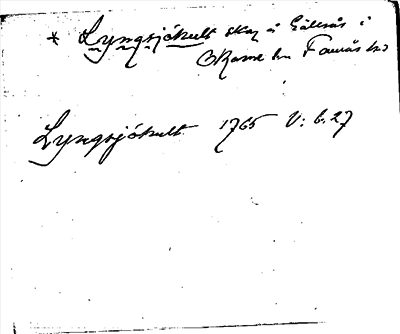 * Lyngsjökult skog å Gällsås i
Okome sn Faurås hd
Lyngsjökult 1765 V: 6.27